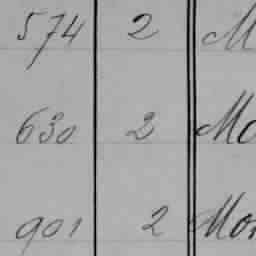 574 2 M
630 2 Mo
901 2 Mon